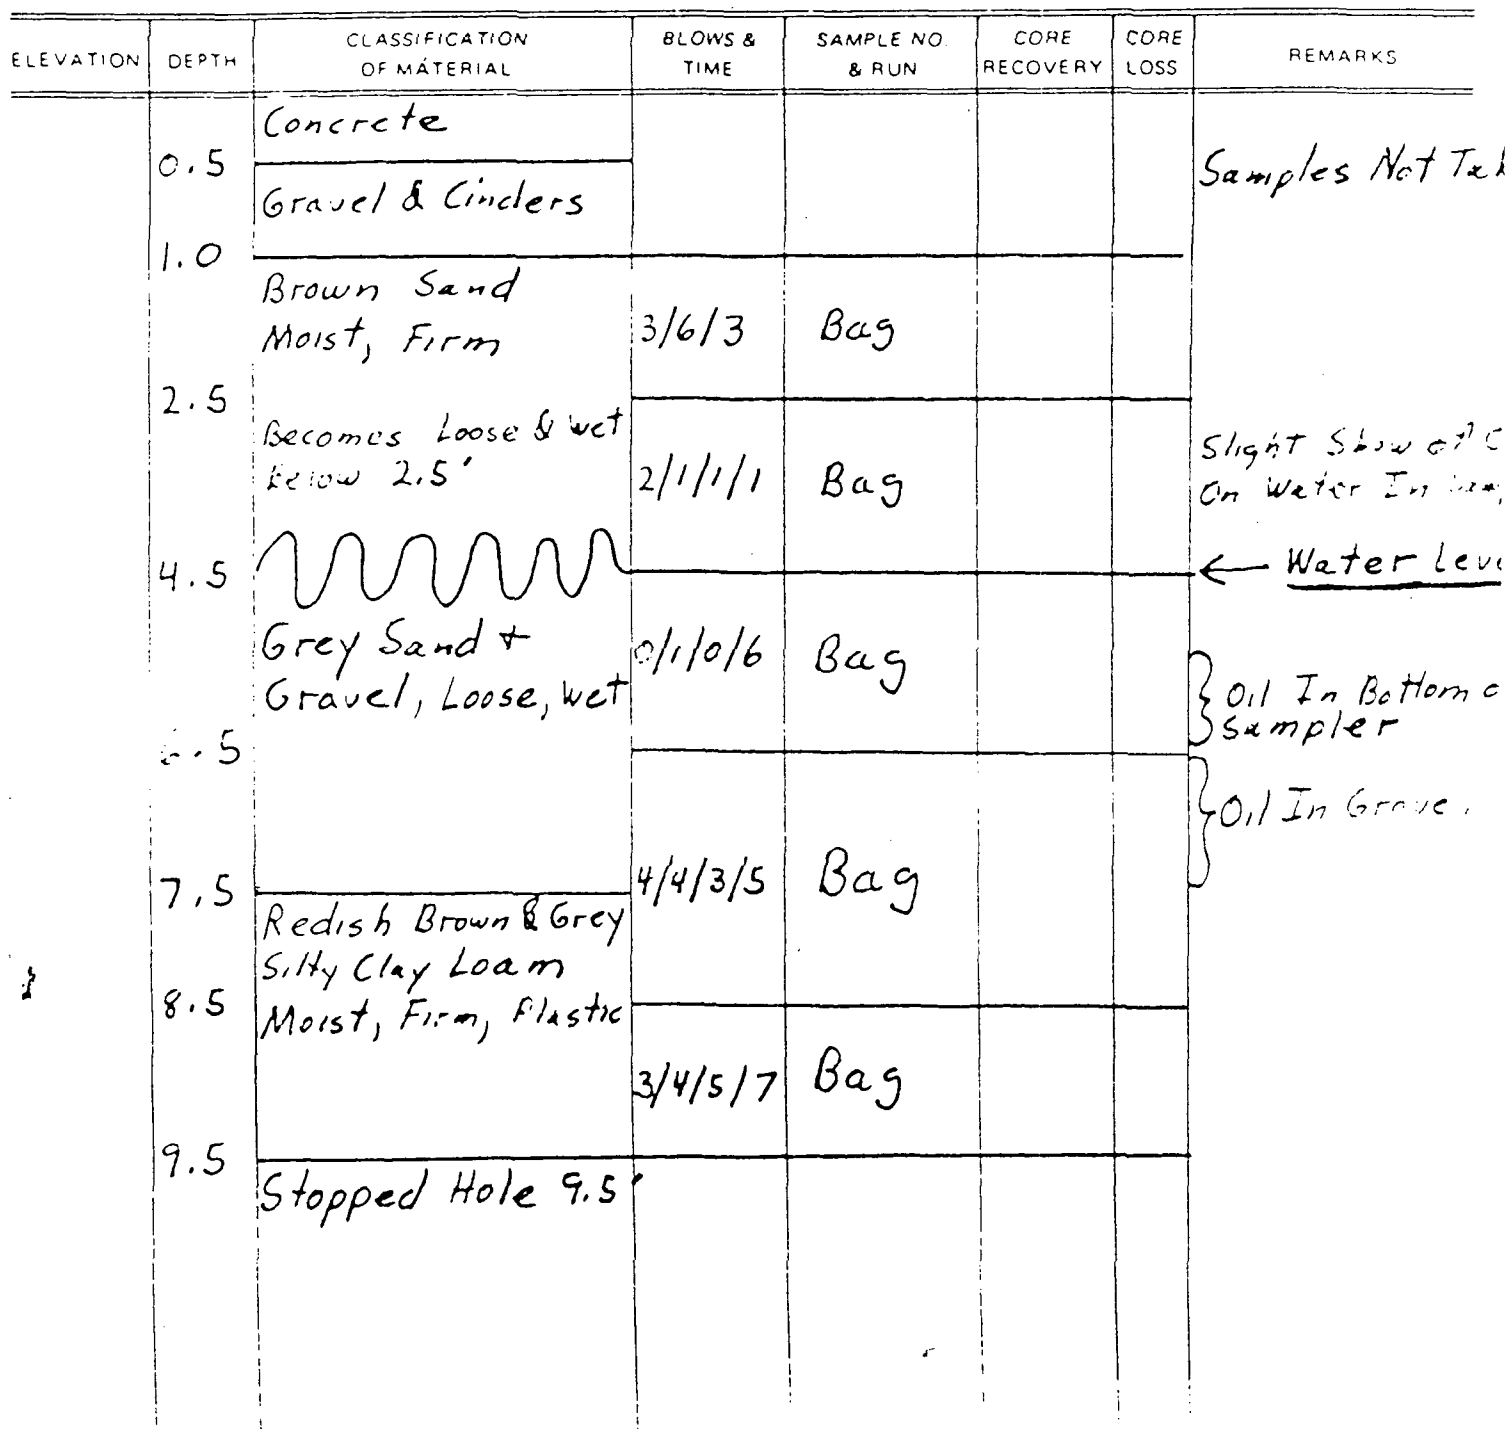 ELEVATION DEPTH CLASSIFICATION OF MATERIAL BLOWS & TIME SAMPLE NO. & RUN CORE RECOVERY CORE LOSS REMARKS
Concrete
0.5
Samples Not
Gravel & Cinders
1.0
Brown Sand
Moist, Firm 3/6/3 Bag
2.5
Becomes Loose & Wet
below 2.5' 2/1/1/1 Bag
Slight Show of
On Water In
4.5 ← Water
Grey Sand +
Gravel, Loose, Wet 0/1/0/6 Bag
Oil In Bottom
Sampler
.5
Oil In
7.5 4/4/3/5 Bag
Redish Brown & Grey
Silty Clay Loam
8.5
Moist, Firm, Plastic
3/4/5/7 Bag
9.5
Stopped Hole 9.5'